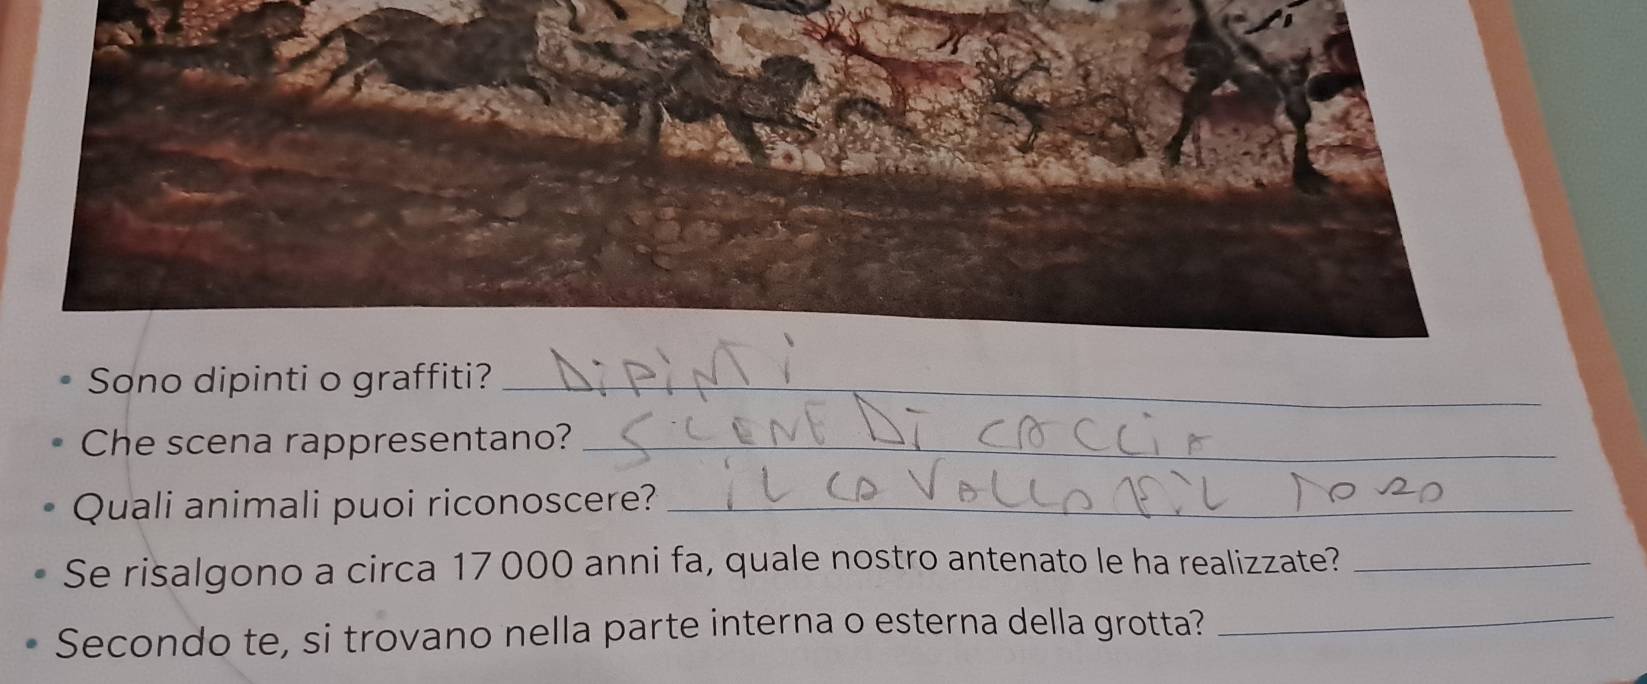 • Sono dipinti o graffiti? DiPiNTi
• Che scena rappresentano? SCENE Di CACCiA
• Quali animali puoi riconoscere? iL CAVALLO E iL TORO
• Se risalgono a circa 17 000 anni fa, quale nostro antenato le ha realizzate?
• Secondo te, si trovano nella parte interna o esterna della grotta?